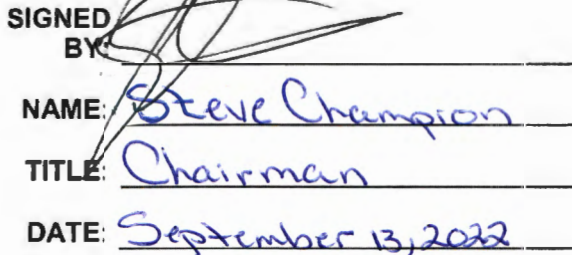 SIGNED
BY:
NAME: Steve Champion
TITLE: Chairman
DATE: September 13, 2022